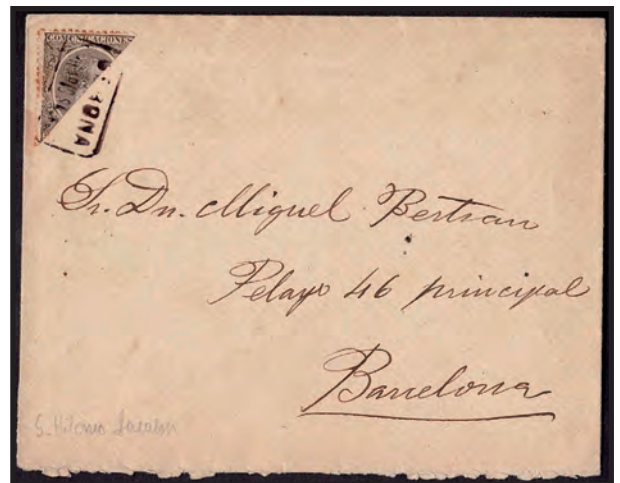 COMUNICACIONES
Sr. Dn. Miguel Bertran
Pelayo 46 principal
Barcelona
S. Hilario